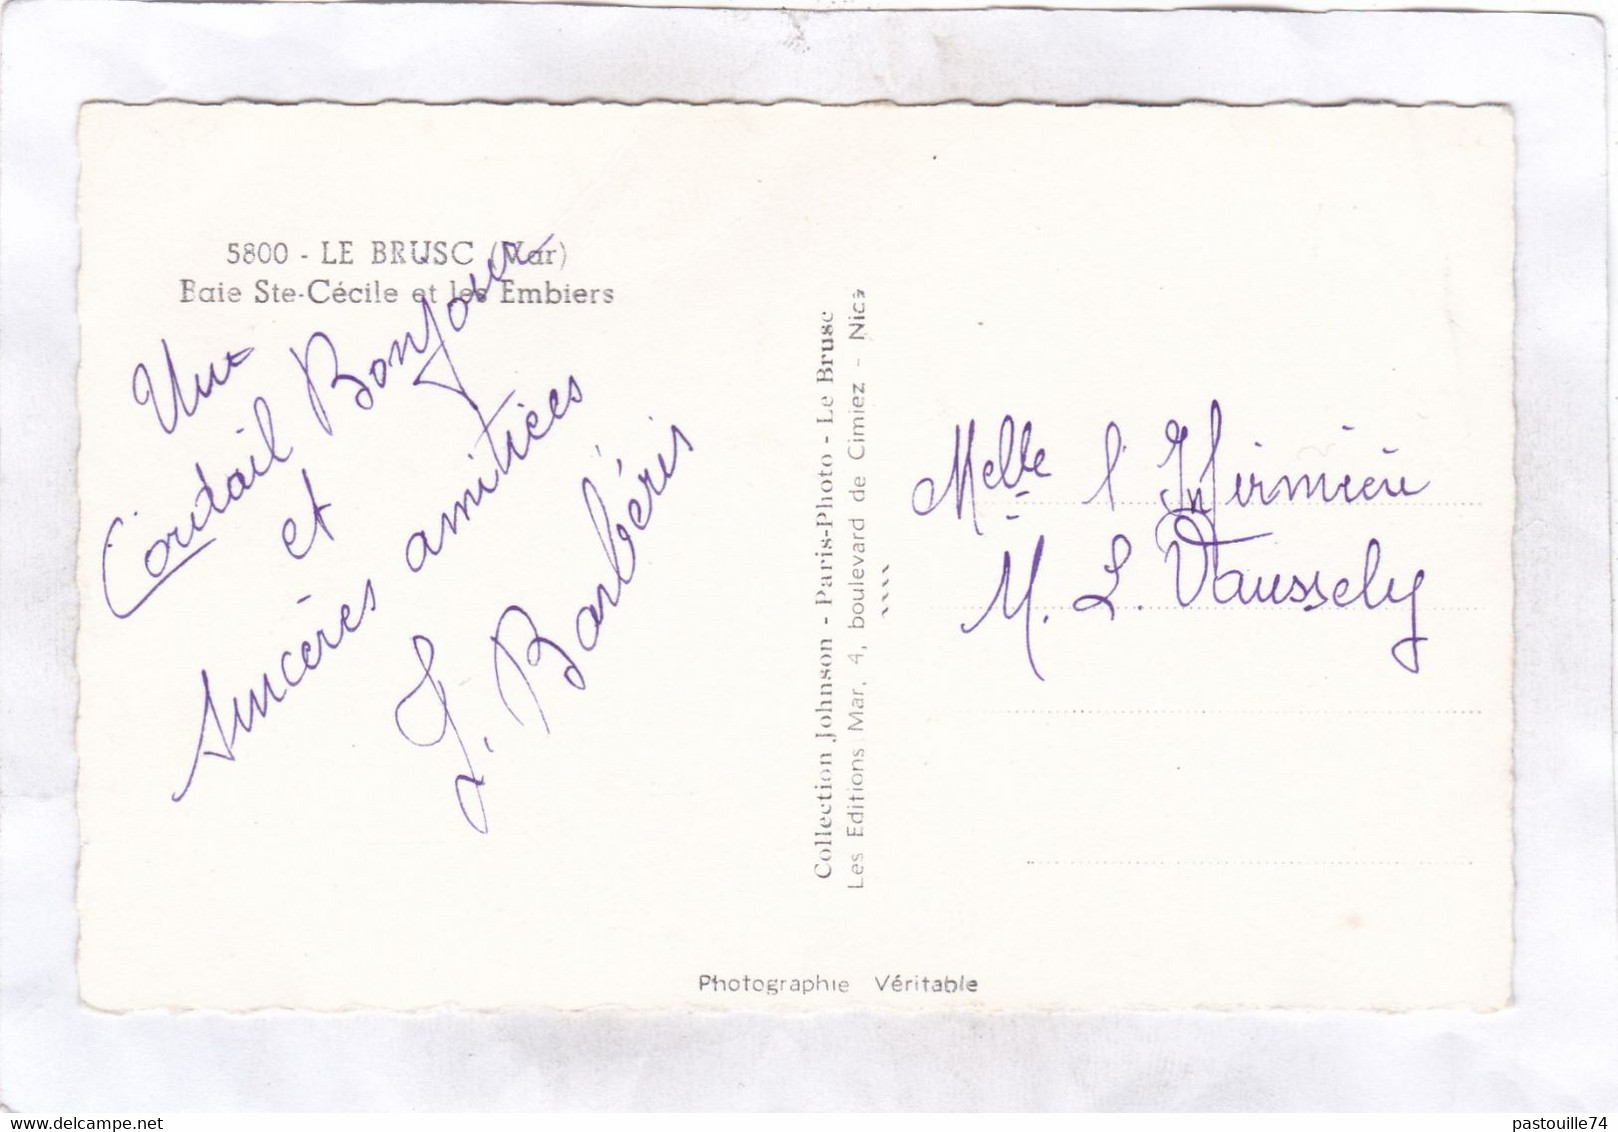 5800 - LE BRUSC (Var)
Baie Ste-Cécile et les Embiers
Une
Cordail Bonjour
et
sincères amitiées
L. Barbéris
Collection Johnson - Paris-Photo - Le Brusc
Les Editions Mar, 4, boulevard de Cimiez - Nice
Melle l'Infirmière
M. L. Vaussely
Photographie Véritable
pastouille74